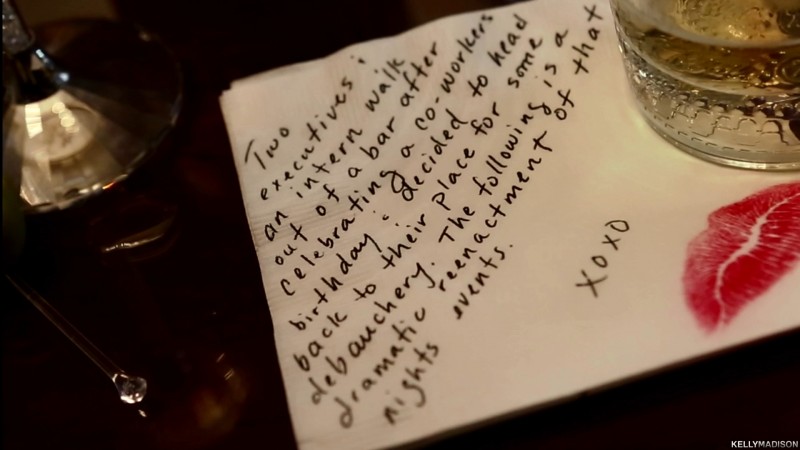 Two
executives &
an intern walk
out of a bar after
celebrating a co-workers
birthday & decided to head
back to their place for some
debauchery. The following is a
dramatic reenactment of that
nights events.
XOXO
KELLYMADISON